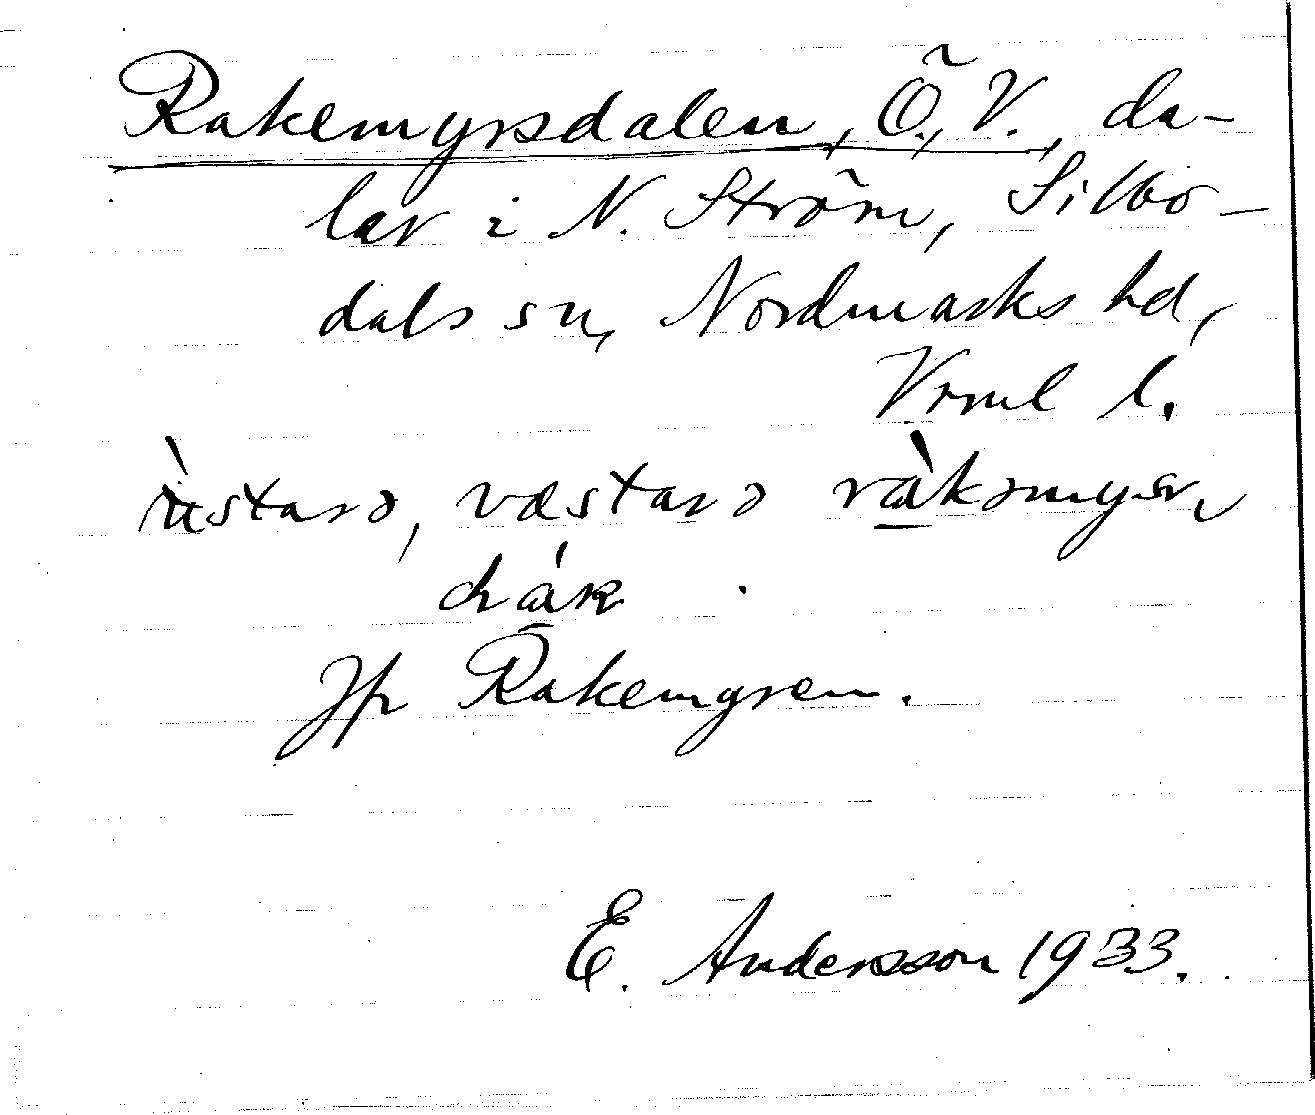 Rakemyrsdalen, Ö., V., da-
lar i N. Ström, Silbo-
dals sn, Nordmarks hd,
Vrml l.
västarə ràkəmysr,
Jfr Rakemyren.
E. Andersson 1933.